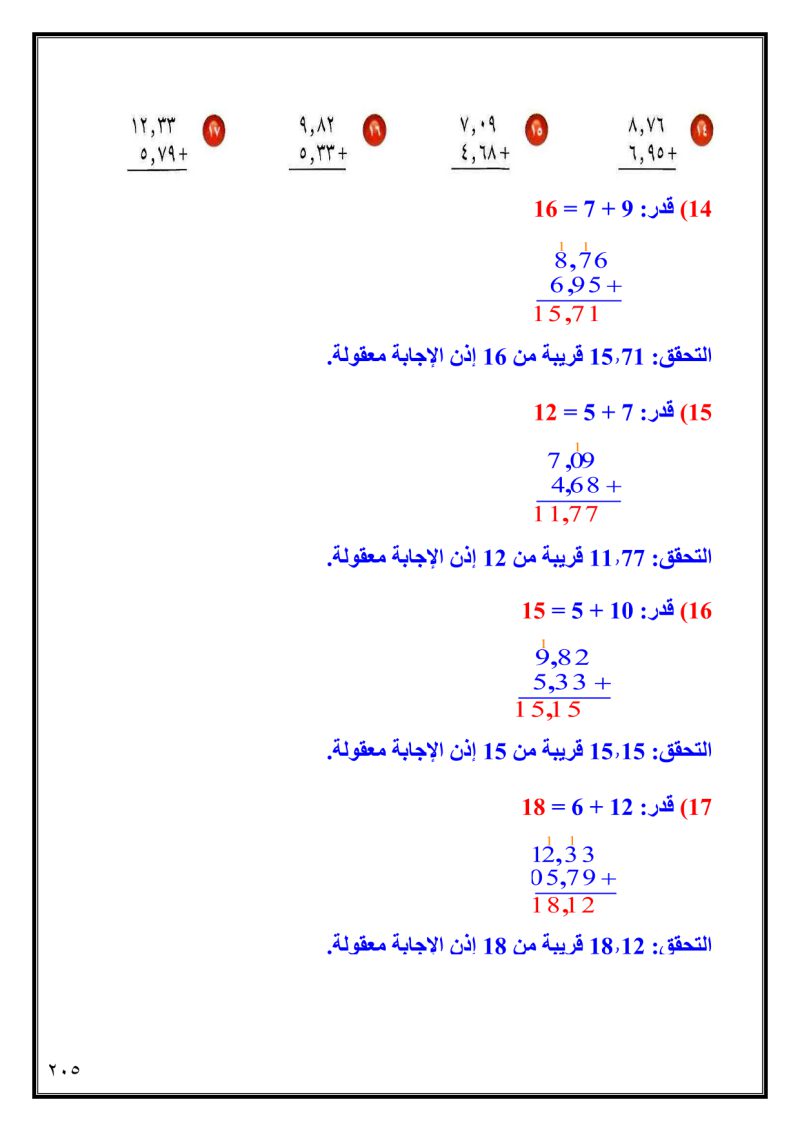 ١٤ ٨,٧٦ ١٥ ٧,٠٩ ١٦ ٩,٨٢ ١٧ ١٢,٣٣
٦,٩٥+ ٤,٦٨+ ٥,٣٣+ ٥,٧٩+
14) قدر: 9 + 7 = 16
1 1
8,76
6,95 +
15,71
التحقق: 15,71 قريبة من 16 إذن الإجابة معقولة.
15) قدر: 7 + 5 = 12
1
7,09
4,68 +
11,77
التحقق: 11,77 قريبة من 12 إذن الإجابة معقولة.
16) قدر: 10 + 5 = 15
1
9,82
5,33 +
15,15
التحقق: 15,15 قريبة من 15 إذن الإجابة معقولة.
17) قدر: 12 + 6 = 18
1 1
12,33
05,79 +
18,12
التحقق: 18,12 قريبة من 18 إذن الإجابة معقولة.
٢٠٥